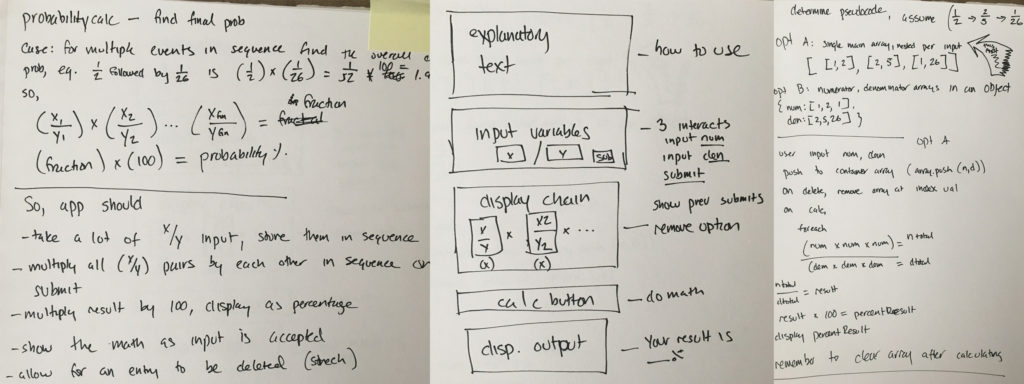 probabilitycalc – find final prob
Case: for multiple events in sequence find the overall
prob, eg. 1/2 followed by 1/26 is (1/2) × (1/26) = 1/52 × 100 =
so,
(X1/Y1) × (X2/Y2) ... (Xfin/Yfin) = fraction
(fraction) × (100) = probability %.
So, app should
- take a lot of x/y input, store them in sequence
- multiply all (x/y) pairs by each other in sequence on
submit
- multiply result by 100, display as percentage
- show the math as input is accepted
- allow for an entry to be deleted (strech)
explanatory
text
- how to use
input variables
x / y sub
- 3 interacts
input num
input den
submit
display chain
x/y × x2/y2 × ...
(x) (x)
show prev submits
- remove option
calc button
- do math
disp. output
- Your result is
__%
determine pseudocode, assume (1/2 → 2/5 → 1/26
opt A: single main array, nested per input
[ [1,2], [2,5], [1,26] ]
opt B: numerator, denominator arrays in an object
{ num: [1,2,1],
den: [2,5,26] }
opt A
user input num, den
push to container array (array.push (n,d))
on delete, remove array at index val
on calc,
foreach
(num × num × num) = ntotal
(dem × dem × dem = dtotal
ntotal/dtotal = result
result × 100 = percentResult
display percentResult
remember to clear array after calculating